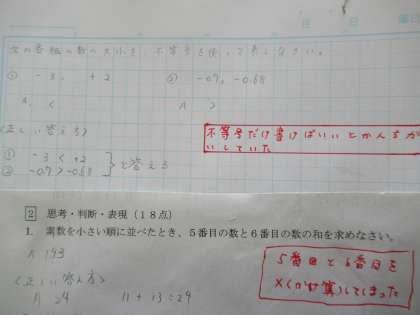 次の各組の数の大小を、不等号を使って表しなさい。
① -3, +2 ② -0.7, -0.68
A. < A >
不等号だけ書けばいいとかんちが
いしていた
(正しい答え方)
① -3 < +2
② -0.7 > -0.68
と答える
2 思考・判断・表現(18点)
1. 素数を小さい順に並べたとき、5番目の数と6番目の数の和を求めなさい。
A 143
5番目と6番目を
×(かけ算)してしまった
(正しい答え方)
A 24 11+13=24